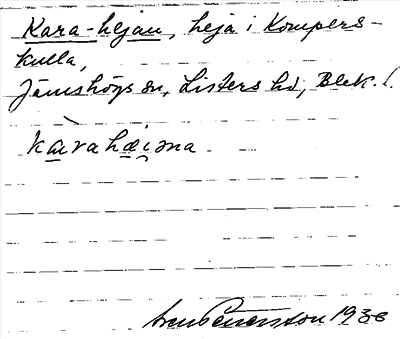 Kara-hejan, heja i Kompers-
kulla,
Jämshögs sn, Listers hd, Blek.l.
kàrahæi̯əna
Sven Benson 1938